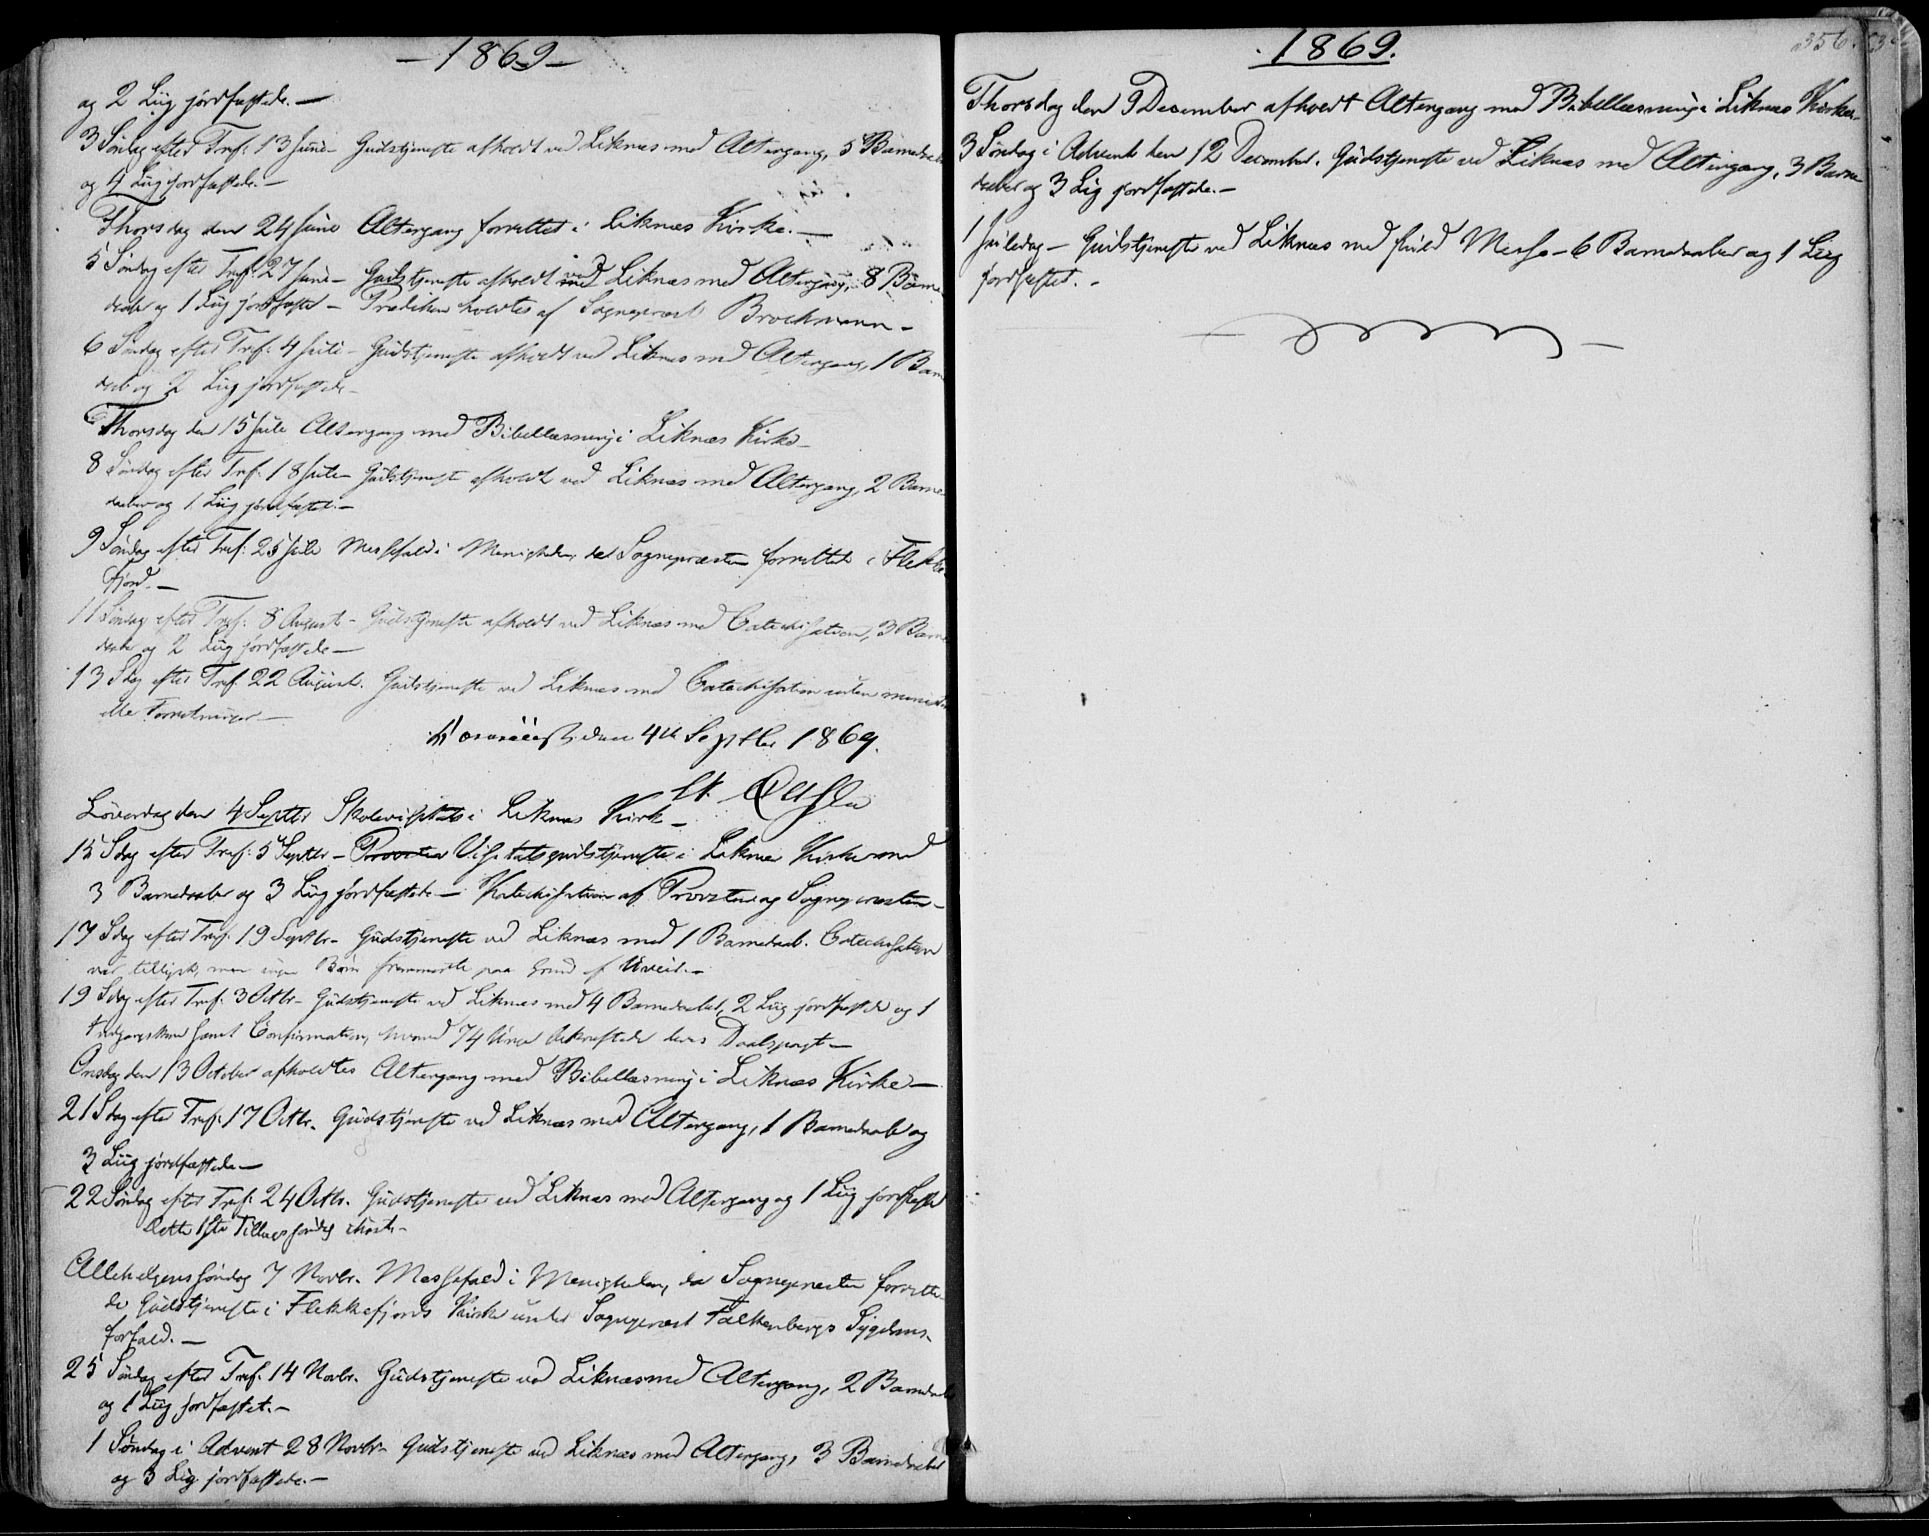 - 1869 -
og 2 Liig jordfæstede. -
3 Søndag efter Tref: 13 Juni - Gudstjeneste afholdt ved Liknes med Altergang, 5 Barnedaabe
og 4 Liig jordfæstede. -
Thorsdag den 24 Juni Altergang forrettet i Liknæs Kirke. -
5 Søndag efter Tref: 27 Juni - Gudstjeneste afholdt ved Liknes med Altergang, 8 Barne-
daab og 1 Liig jordfæstet - Prædiken holdtes af Sognepræst Brochmann -
6 Søndag efter Tref: 4 Juli - Gudstjeneste afholdt ved Liknes med Altergang, 1 Barne
daab og 2 Liig jordfæstede -
Thorsdag den 15 Juli Altergang med Bibellæsning i Liknæs Kirke -
8 Søndag efter Tref: 18 Juli - Gudstjeneste afholdt ved Liknes med Altergang, 2 Barne-
daaber og 1 Liig jordfæstet. -
9 Søndag efter Tref: 25 Juli Messefald i Menigheden, da Sognepræsten forrettede i Flekke-
fjord. -
11 Søndag efter Tref: 8 August - Gudstjeneste afholdt ved Liknæs med Catechisation, 3 Barne
daabe og 2 Liig jordfæstede -
13 Sdag efter Tref. 22 August. Gudstjeneste ved Liknæs med Catechisation uden ministeri
elle Forretninger -
den 4de Septbr 1869.
Løverdag den 4 Septbr Skolevisitats i Liknæs Kirke -
15 Sdag efter Tref: 5 Septbr - Visitatsgudstjeneste i Liknes Kirke med
3 Barnedaaber og 3 Liig jordfæstede - Katechisation af Provsten og Sognepræsten -
17 Sdag efter Tref: 19 Septbr - Gudstjeneste ved Liknæs med 1 Barnedaab. Catechisation
var tillyst, men ingen Børn fremmødte paa Grund af Uveir. -
19 Sdag efter Tref: 3 Octbr - Gudstjeneste ved Liknes med 4 Barnedaaber, 2 Liig jordfæstede og 1
samt Confirmation, hvorved 74 Unge bekræftede deres Daabspagt -
Onsdag den 13 October afholdtes Altergang med Bibellæsning i Liknæs Kirke -
21 Sdag efter Tref: 17 Octbr. Gudstjeneste ved Liknæs med Altergang, 1 Barnedaab og
3 Liig jordfæstede -
22 Søndag efter Tref: 24 Octbr. Gudstjeneste ved Liknæs med Altergang og 1 Liig jordfæstet
Dette 1ste
Allehelgenssøndag 7 Novbr. Messefald i Menigheden, da Sognepræsten forrette-
de Gudstjeneste i Flekkefjords Kirke under Sognepræst Falkenbergs Sygdoms-
forfald. -
25 Søndag efter Tref: 14 Novbr. Gudstjeneste ved Liknæs med Altergang, 2 Barnedaabe
og 1 Liig jordfæstet. -
1 Søndag i Advent 28 Novbr - Gudstjeneste ved Liknæs med Altergang, 3 Barnedaaber
og 3 Lig jordfæstede. -
1869.
356.
Thorsdag den 9 December afholdt Altergang med Bibellæsning i Liknæs Kirke
3 Søndag i Advent den 12 December. Gudstjeneste ved Liknæs med Altergang, 3 Barne-
daaber og 3 Lig jordfæstede. -
1 Juledag - Gudstjeneste ved Liknæs med fuld Messe - 6 Barnedaaber og 1 Liig
jordfæstet. -